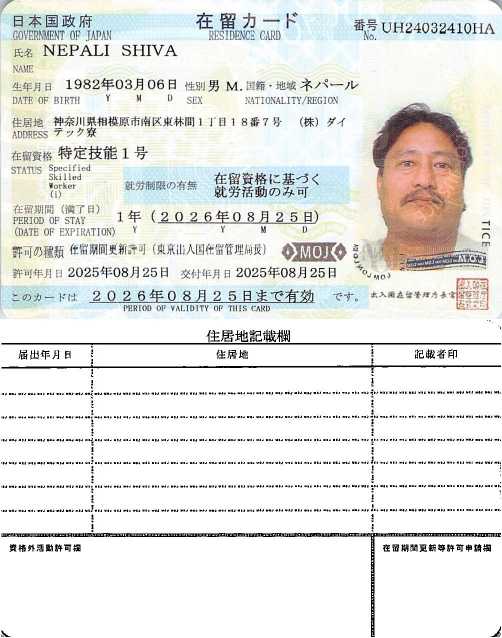 日本国政府
GOVERNMENT OF JAPAN
在留カード
RESIDENCE CARD
番号 No. UH24032410HA
氏名 NEPALI SHIVA
NAME
生年月日 1982年03月06日 性別 男 M. 国籍・地域 ネパール
DATE OF BIRTH Y M D SEX NATIONALITY/REGION
住居地 神奈川県相模原市南区東林間1丁目18番7号 (株)ダイ
ADDRESS テック寮
在留資格 特定技能1号
STATUS Specified
Skilled
Worker
(i)
就労制限の有無 在留資格に基づく
就労活動のみ可
在留期間(満了日)
PERIOD OF STAY
(DATE OF EXPIRATION)
1年(2026年08月25日)
Y Y M D
許可の種類 在留期間更新許可(東京出入国在留管理局長)
MOJ
許可年月日 2025年08月25日 交付年月日 2025年08月25日
このカードは 2026年08月25日まで有効 です。
PERIOD OF VALIDITY OF THIS CARD
MOJ MOJ MOJ
出入国在留管理庁長官
住居地記載欄
届出年月日 住居地 記載者印
資格外活動許可欄 在留期間更新等許可申請欄